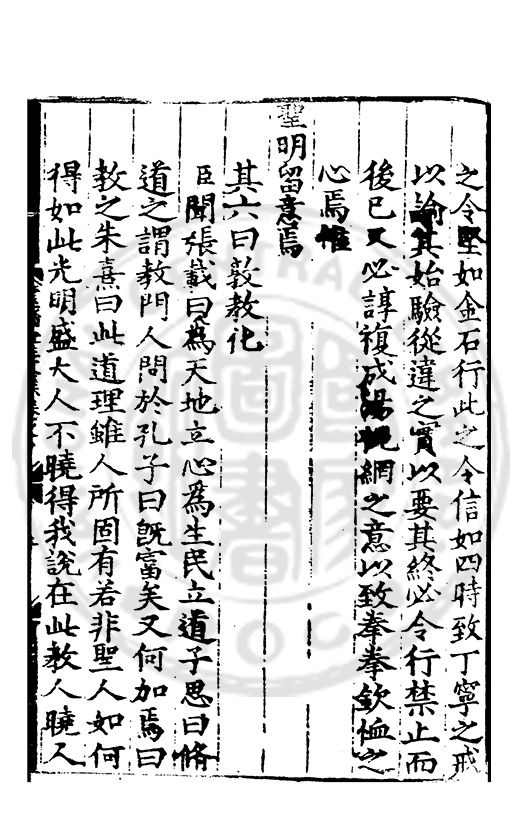 之令堅如金石行此之令信如四時致丁寧之戒
以諭其始驗從違之實以要其終必令行禁止而
後已又必諄復成湯祝網之意以致拳拳欽恤之
心焉惟
聖明留意焉
其六曰敦教化
臣聞張載曰為天地立心為生民立道子思曰脩
道之謂教門人問於孔子曰既富矣又何加焉曰
教之朱熹曰此道理雖人所固有若非聖人如何
得如此光明盛大人不曉得我說在此教人曉人